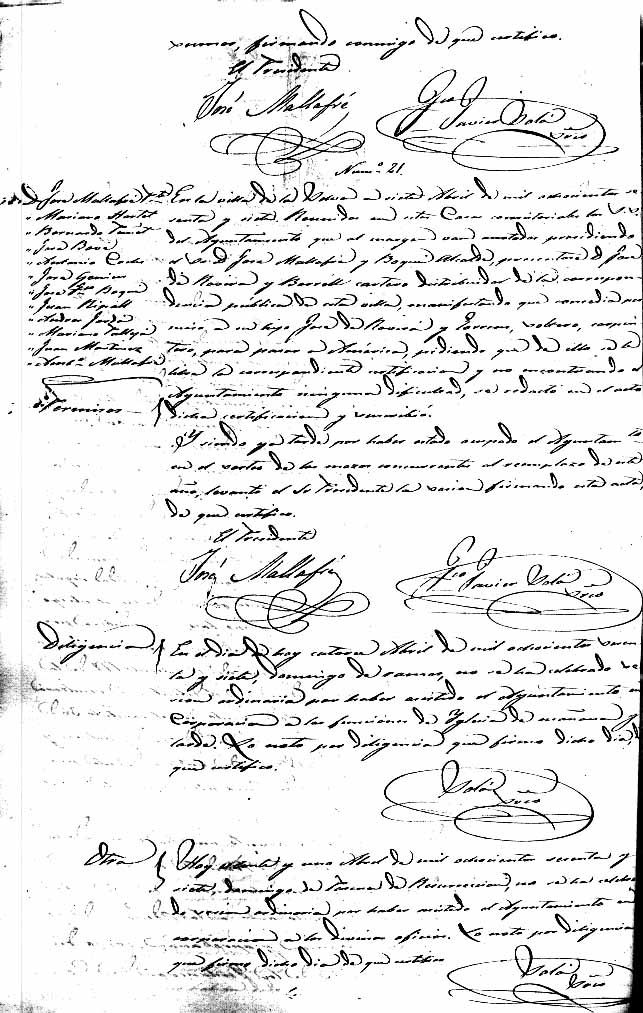 firmando conmigo de que certifico.
El Presidente
José Mallafré
Javier Solá
Srio
Num.º 21.
D. José Mallafré
" Mariano
" Bernardo
" José
" Antonio
" José
" José Boqué
" Juan Ripoll
" Andrés Jordá
" Mariano
" Juan Martinez
" Mallafré
Permisos
En la villa de la Selva a siete Abril de mil ochocientos se
senta y siete. Reunidos en esta Casa consistorial los S.S.
del Ayuntamiento que al margen van anotados presidiendo
el Sr. D. José Mallafré y Boqué Alcalde, presentóse D. José
de y Borrell cartero distribuidor de la correspon
dencia pública de esta villa, manifestando que concedia per
miso a su hijo José de y soltero, carpin
tero, para pasar a América, pidiendo que de ello se le
libre la correspondiente certificacion y no encontrando el
Ayuntamiento ninguna dificultad, se redactó en el acto
dicha certificacion y suscribió.
Y siendo ya tarde por haber estado ocupado el Ayuntam.to
en el sorteo de los mozos concurrentes al reemplazo de este
año, levantó el Sr. Presidente la sesion firmando esta acta,
de que certifico.
El Presidente
José Mallafré
Javier Solá
Srio
Diligencia
En el dia de hoy catorce Abril de mil ochocientos sesen
ta y siete, domingo de ramos, no se ha celebrado se
sion ordinaria por haber asistido el Ayuntamiento en
Corporacion a las funciones de Iglesia de mañana y
tarde. Lo noto por diligencia que firmo dicho dia, de
que certifico.
Solá
Srio
Otra
Hoy veinte y uno Abril de mil ochocientos sesenta y
siete, domingo de Pascua de Resurreccion, no se ha celebra
do sesion ordinaria por haber asistido el Ayuntamiento en
corporacion a los divinos oficios. Lo noto por diligencia
que firmo dicho dia de que certifico
Solá
Srio